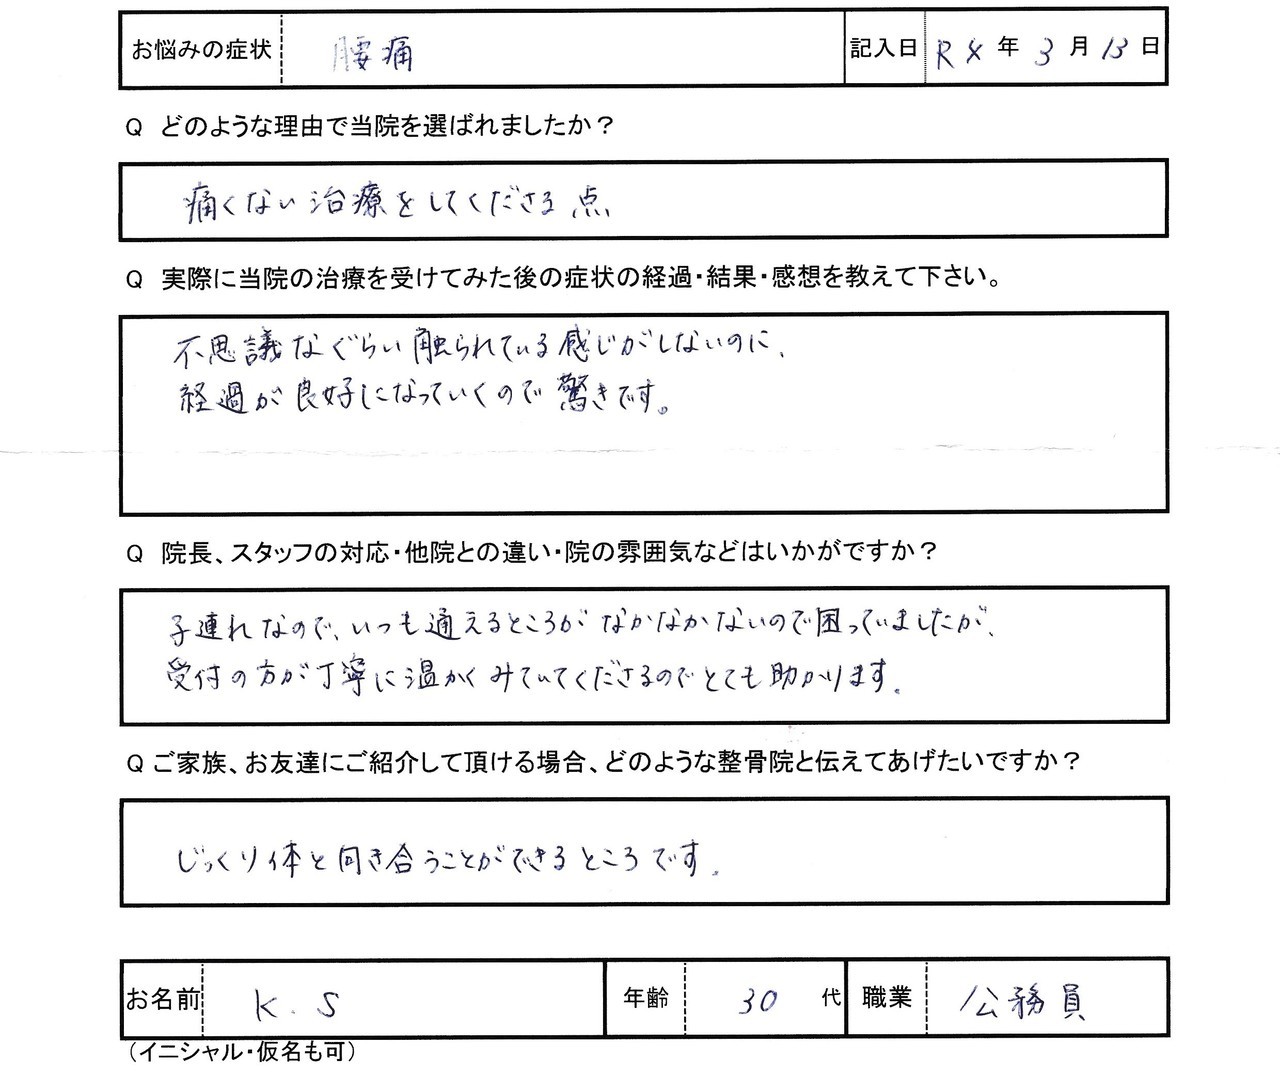 お悩みの症状 腰痛 記入日 R4年3月13日
Q どのような理由で当院を選ばれましたか？
痛くない治療をしてくださる点
Q 実際に当院の治療を受けてみた後の症状の経過・結果・感想を教えて下さい。
不思議なぐらい触られている感じがしないのに、
経過が良好になっていくので驚きです。
Q 院長、スタッフの対応・他院との違い・院の雰囲気などはいかがですか？
子連れなので、いつも通えるところがなかなかないので困っていましたが、
受付の方が丁寧に温かくみていてくださるのでとても助かります。
Q ご家族、お友達にご紹介して頂ける場合、どのような整骨院と伝えてあげたいですか？
じっくり体と向き合うことができるところです。
お名前 K.S 年齢 30代 職業 公務員
（イニシャル・仮名も可）